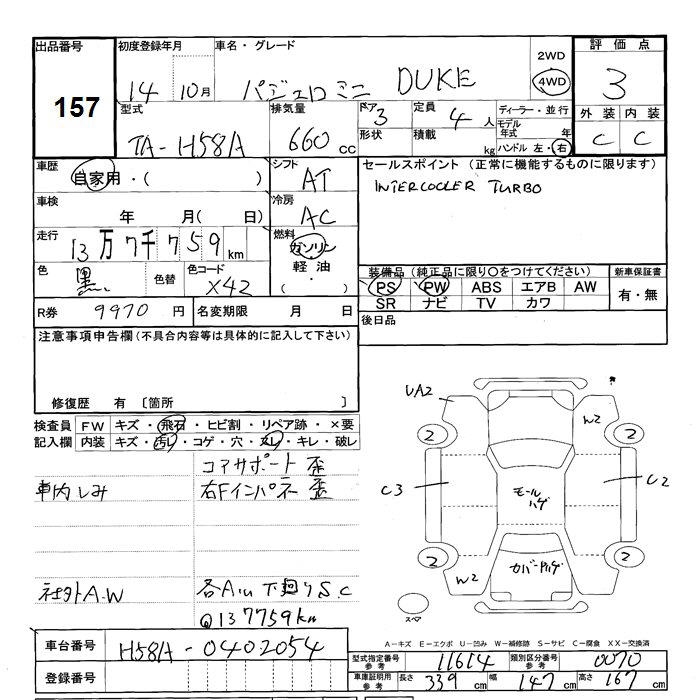 出品番号 157
初度登録年月 14 10月
車名・グレード パジェロミニ DUKE
2WD
4WD
評価点 3
外装 内装
C C
型式 TA-H58A
排気量 660 cc
ドア 3
形状
定員 4 人
積載 kg
ディーラー・並行
モデル年式 年
ハンドル 左・右
車歴 自家用・( )
シフト AT
セールスポイント (正常に機能するものに限ります)
INTERCOOLER TURBO
車検 年 月( 日)
冷房 AC
走行 13万7千759 km
燃料 ガソリン
軽油・
( )
色 黒 色替 色コード X42
装備品 (純正品に限り○をつけてください)
新車保証書
PS PW ABS エアB AW
SR ナビ TV カワ
有・無
R券 9970 円 名変期限 月 日
後日品
注意事項申告欄 (不具合内容等は具体的に記入して下さい)
修復歴 有 〔箇所 〕
検査員記入欄
FW キズ・飛石・ヒビ割・リペア跡・×要
内装 キズ・汚レ・コゲ・穴・スレ・キレ・破レ
コアサポート 歪
車内しみ 右Fインパネー 歪
社外A.W 各A/W 下廻りS.C
@137759km
UA2
W2
2
2
C3
C2
モール ハゲ
2
2
W2
カバーハゲ
スペア
A-キズ E-エクボ U-凹み W-補修跡 S-サビ C-腐食 XX-交換済
車台番号 H58A-0402054
登録番号
型式指定番号 参考 11614 類別区分番号 参考 0070
車庫証明用 参考 長さ 339 cm 幅 147 cm 高さ 167 cm